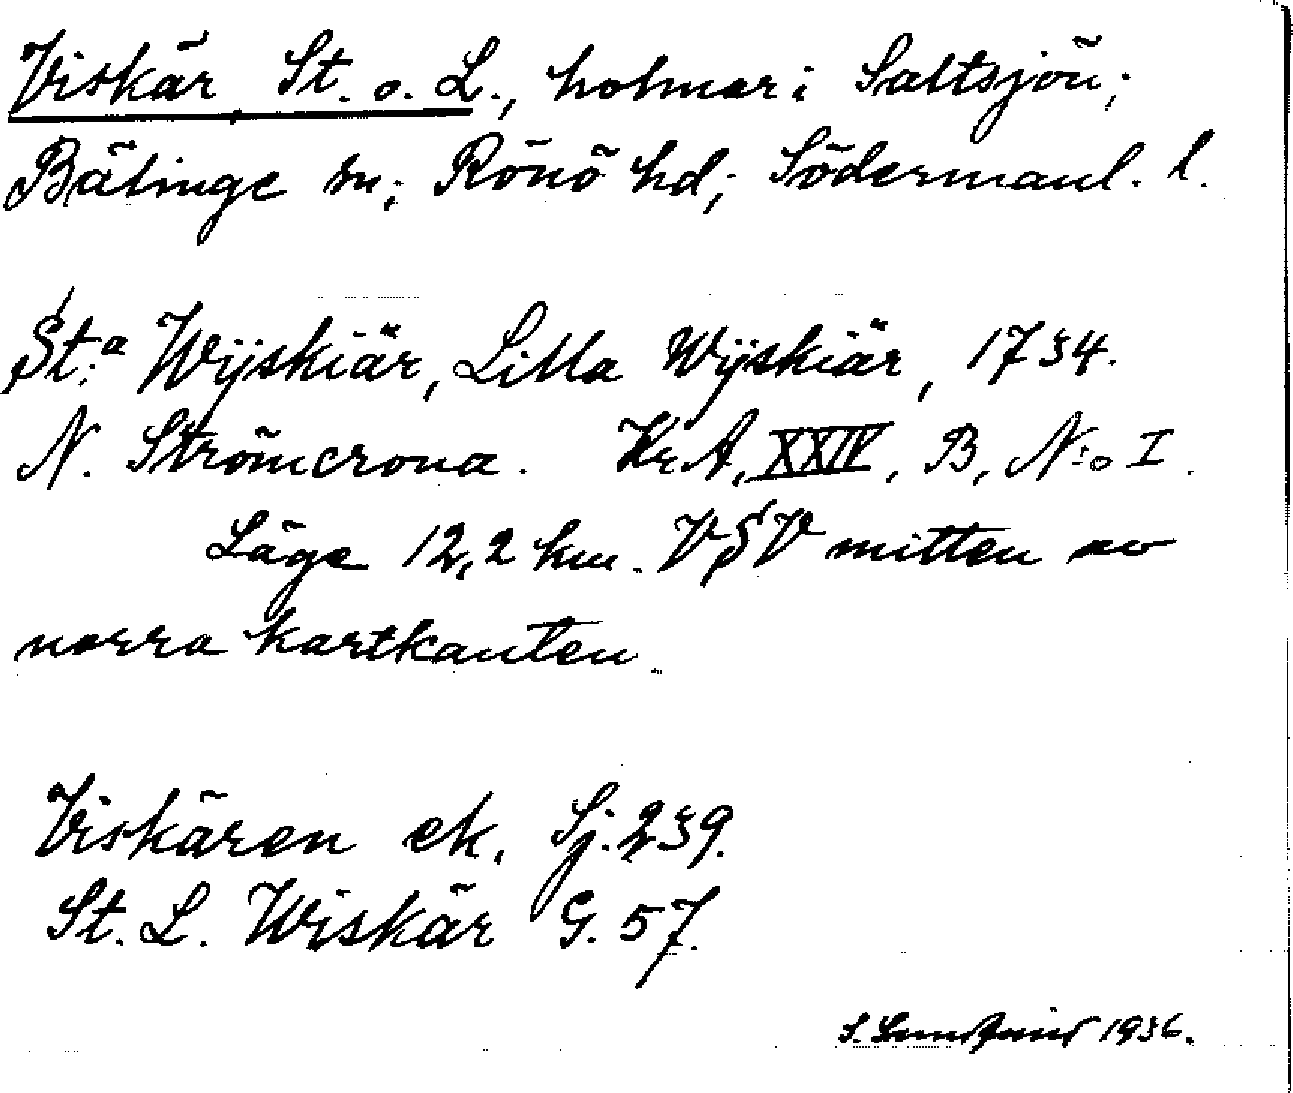 Viskär, St. o. L., holmar i Saltsjön;
Bälinge sn; Rönö hd; Södermanl. l.
St:a Wijskiär, Lilla Wijskiär, 1734.
N. Strömcrona. Kr A, XXIV, B, N:o I.
Läge 12,2 km. VSV mitten av
norra kartkanten.
Viskären ek. Sj. 239.
St. L. Wiskär G. 57.
S. 1936.